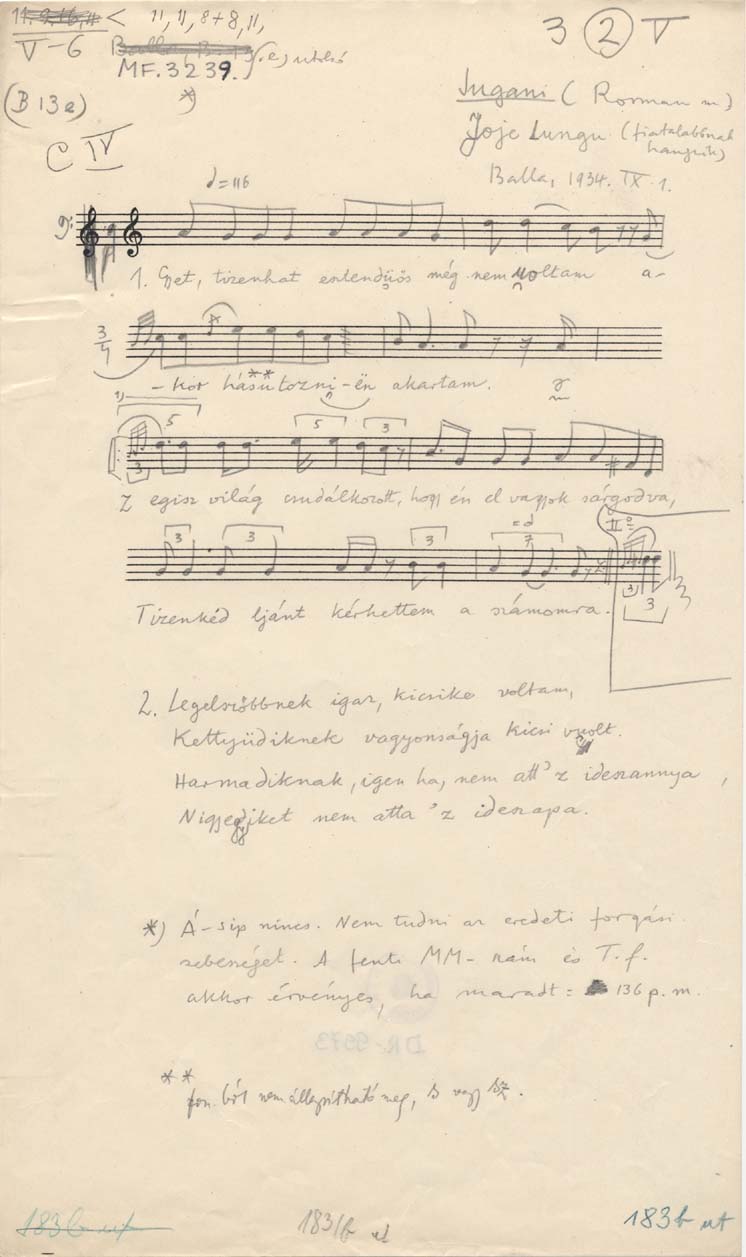 11, 11, 8+8, 11,
V-6
MF. 3239. utolsó
3 (2) V
(B 13e) *)
C IV
Iugani (Roman m)
Joje Lungu (fiatalabbnak hangzik)
Balla, 1934. IX. 1.
= 116
1. tizenhat esztendüös még nem vuoltam a-
3/4
-kor hásutozni-ën akartam.
**
5 5 3
3
Z egisz világ csudálkozott, hogy én el vagyok sárgodva,
3 3 3 7 II°
3
3
Tizenkéd ljánt kérhettem a számomra.
2. Legelsiőbbnek igaz, kicsike voltam,
Kettyüdiknek vagyonságja kicsi vuolt.
Harmadiknak, igen ha, nem att' z ideszannya,
nem atta 'z ideszapa.
*) Á-síp nincs. Nem tudni az eredeti forgási
sebességet. A fenti MM-szám és T.f.
akkor érvényes, ha maradt = 136 p.m.
**
fon. ból nem állapítható meg, s vagy sz.
DR-9573
183 b ut
183/b ut
183 b ut